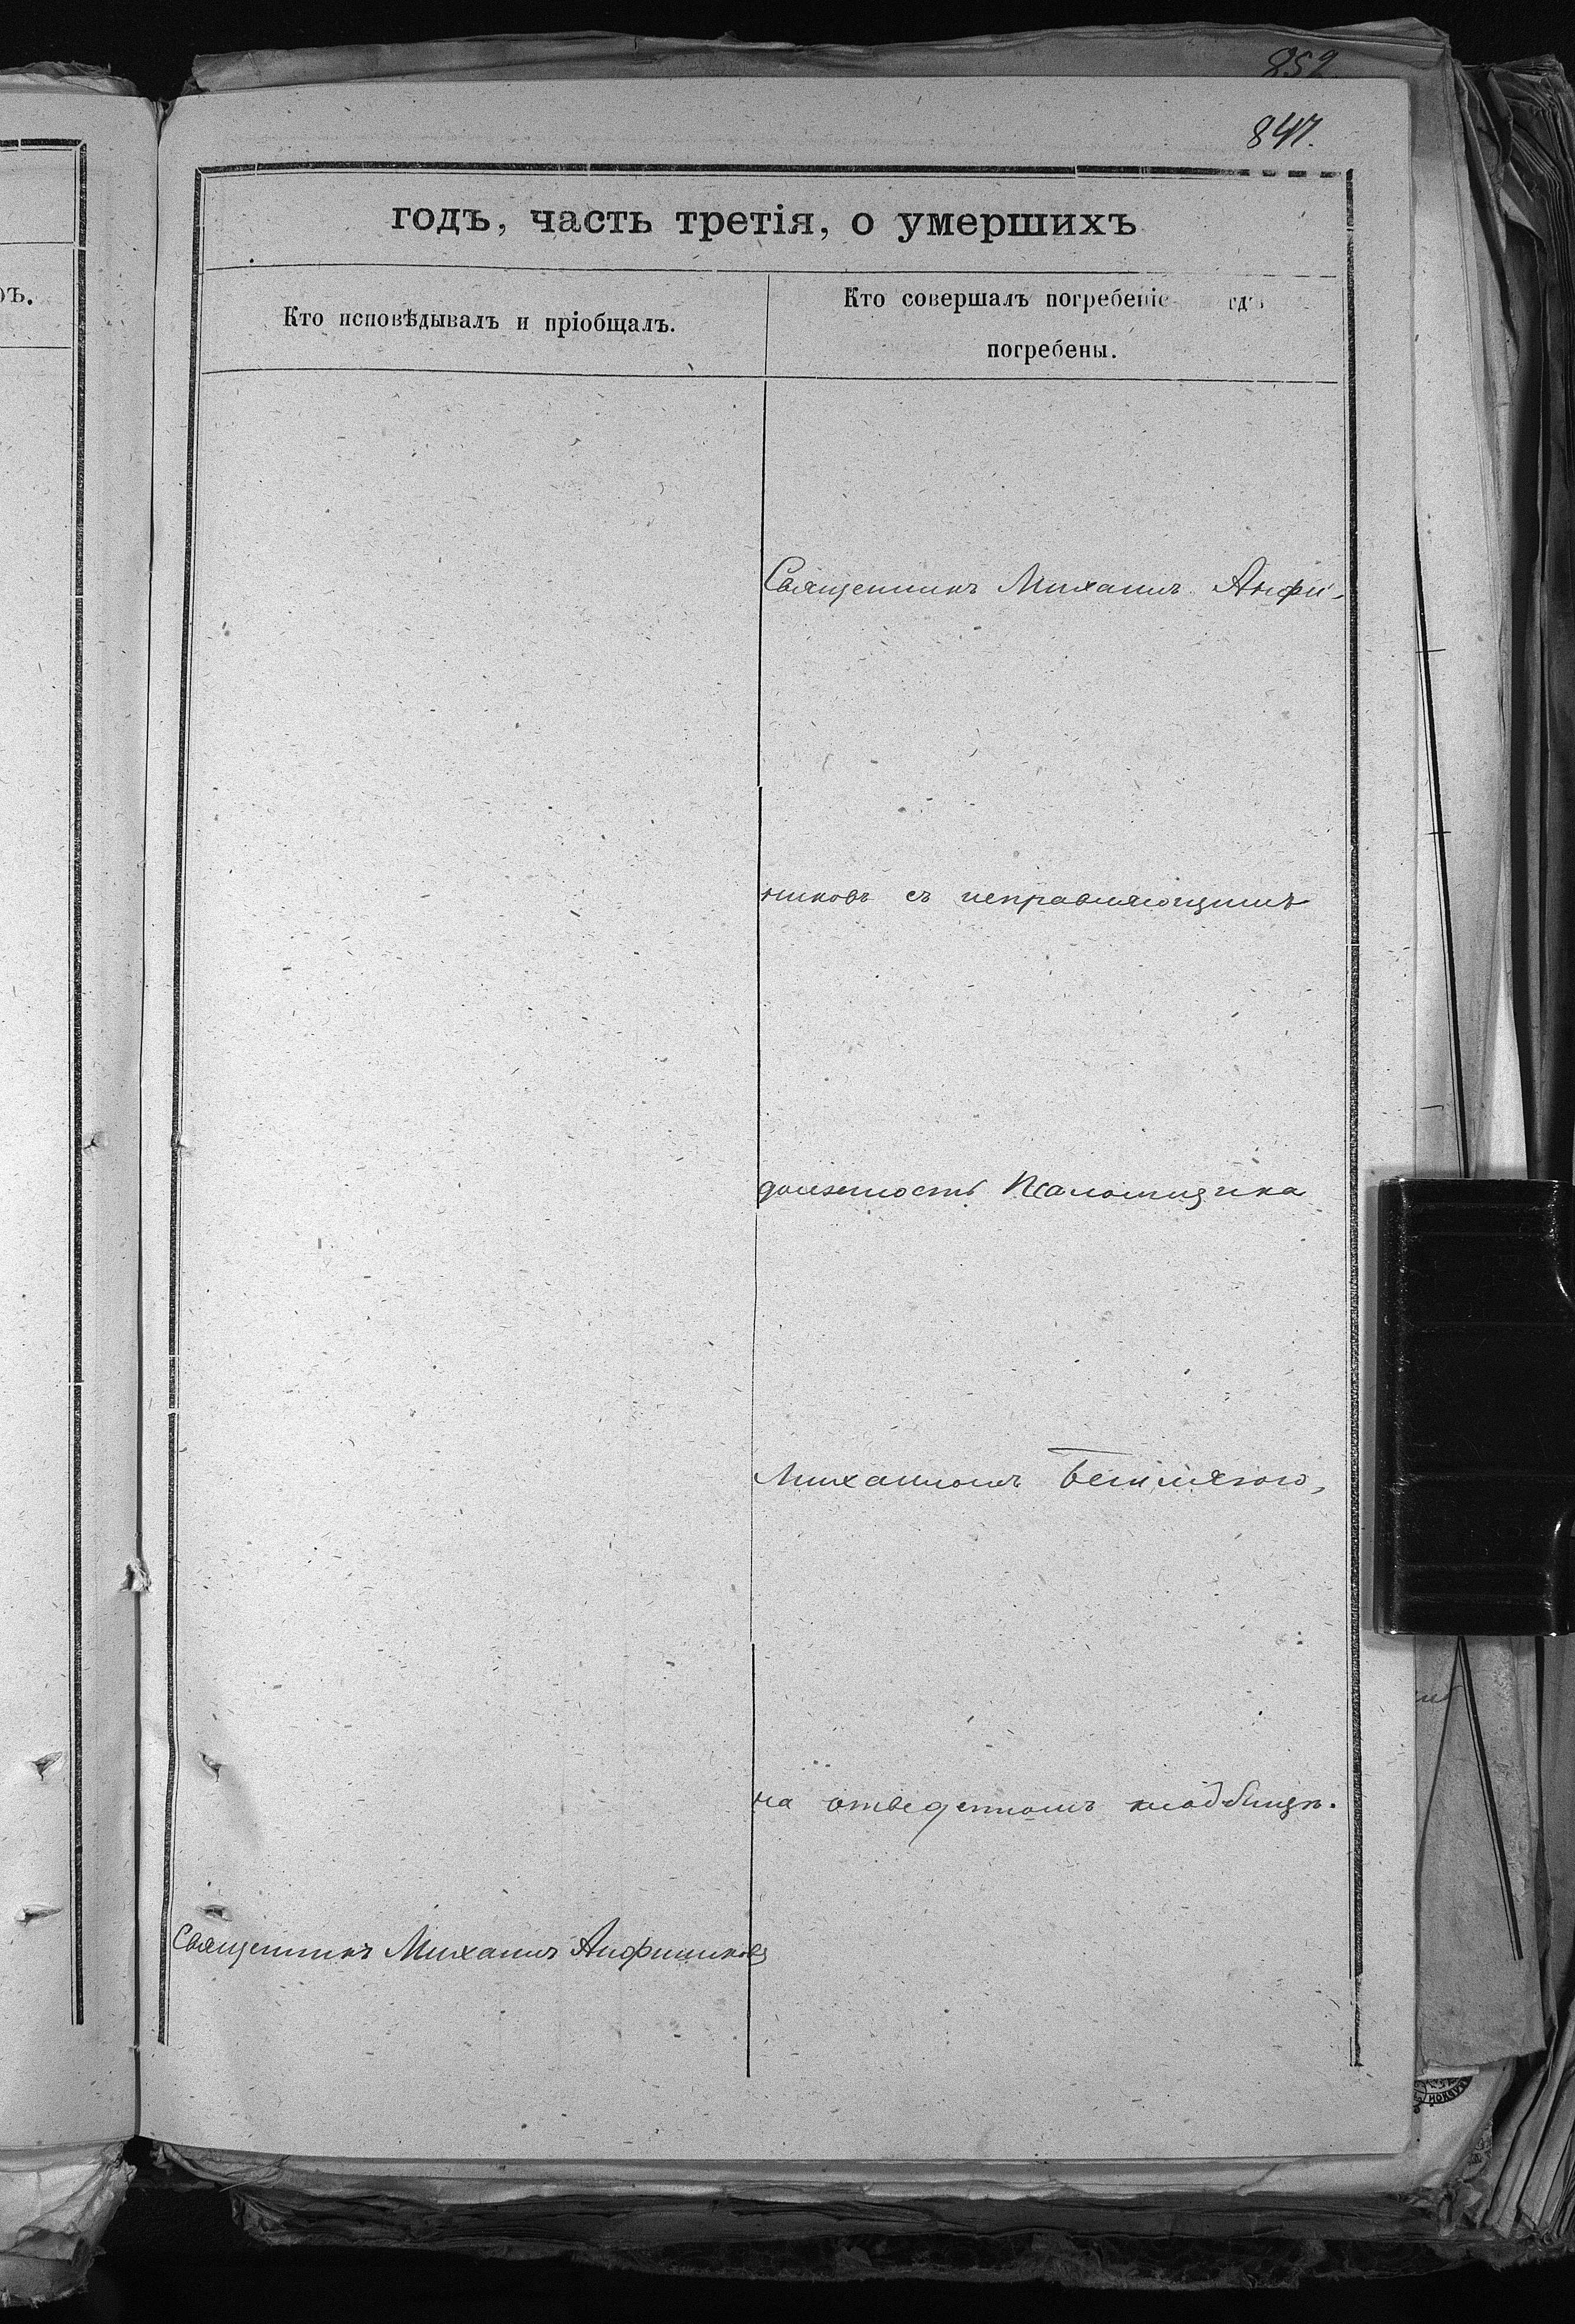 852
847.
годъ, часть третія, о умершихъ
ръ.
Кто исповѣдывалъ и пріобщалъ.
Кто совершалъ погребеніе гдѣ
погребены.
Священникъ Михаилъ Анфи-
никовъ съ исправляющимъ
должность Псаломщика
Михаиломъ
на отведенномъ кладбищѣ.
Священникъ Михаилъ Анфиниковъ